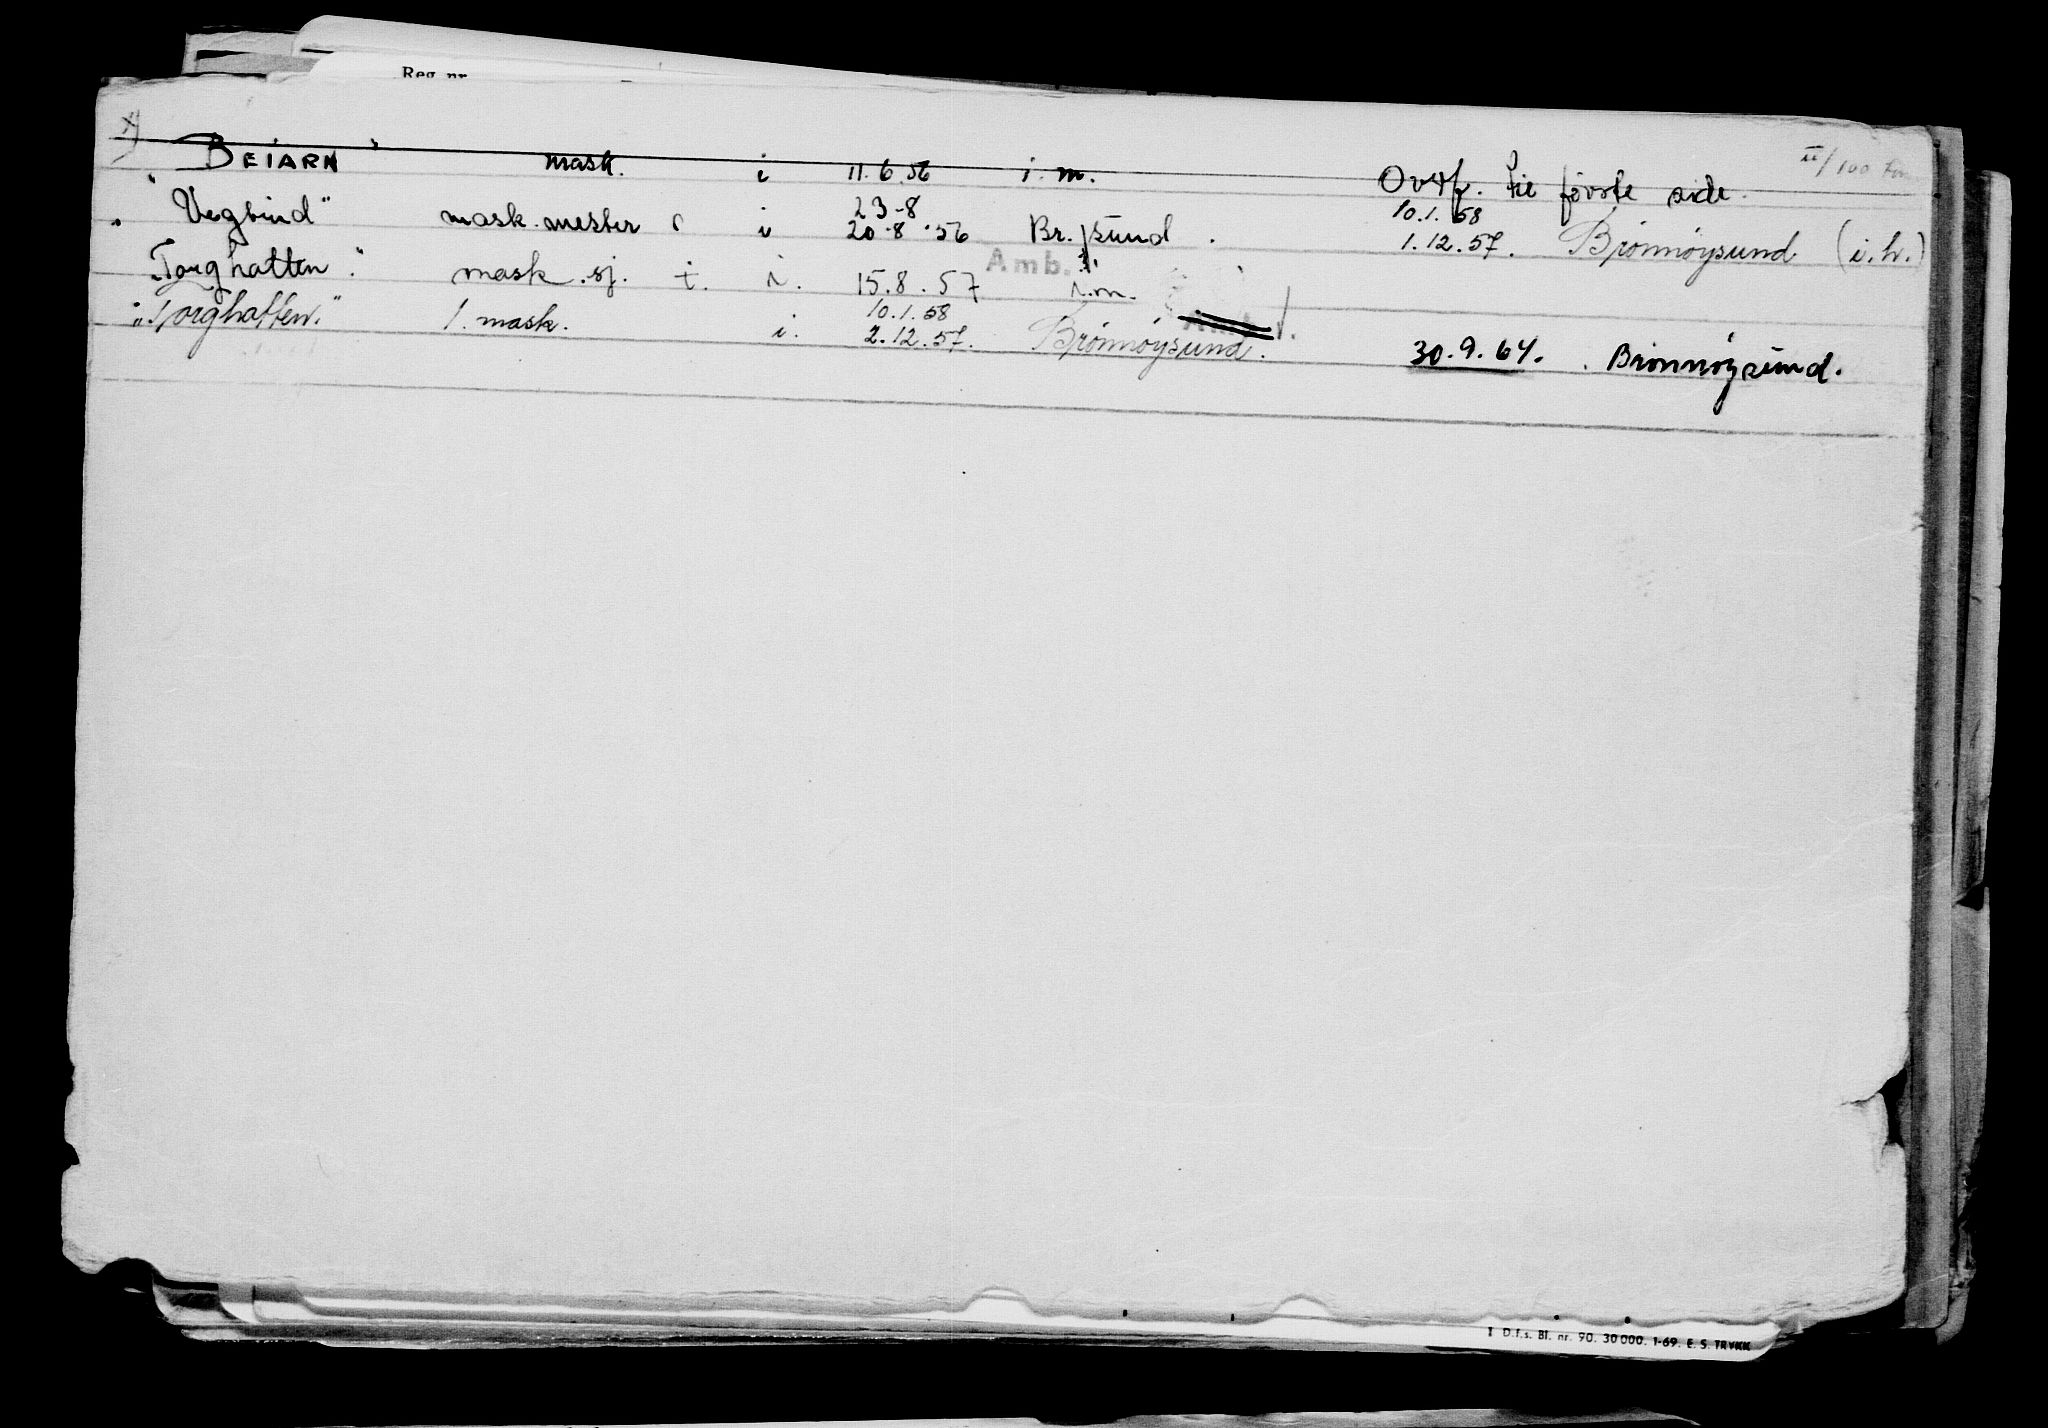 Reg. nr.
x) "BEIARN" mask. i 11.6.56 i.m. Ovrf. til første side. II/100
"Vegtind" mask.mester i 23-8 20.8.56 Br.sund. 10.1.58 1.12.57. Brønnøysund (i.h.)
"Torghatten". mask.sj. t. i. 15.8.57 Amb. i.m.
"Torghatten." 1. mask. i. 10.1.58 2.12.57. Brønnøysund. 30.9.64. Brønnøysund.
I D.f.s. Bl. nr. 90. 30 000. 1-69. E. S. TRYKK